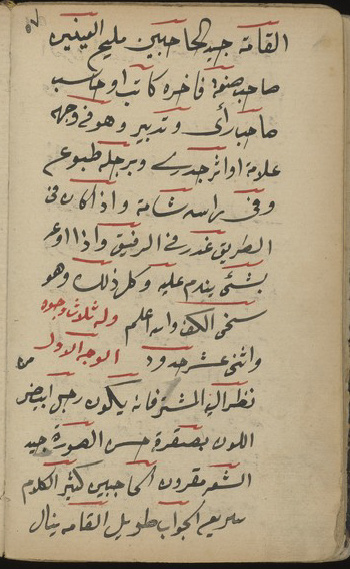 ٥٧
القامة جيد الحاجبين مليح العينين
صاحب صنعة فاخره كاتب او حاسب
صاحب رأى وتدبير وهو فى وجهه
علامة او اثر جدرى وبرجله طبوع
وفى راسه شامة واذا كان فى
الطريق غدر فى الرفيق واذا اوعد
بشئ يندم عليه وكل ذلك وهو
سخى الكف والله اعلم وله ثلاث وجوه
واثنى عشر حدود الوجه الاول
نظر اليه المشترى فانه يكون رجل ابيض
اللون بصفرة حسن الصورة جيد
الشعر مقرون الحاجبين كثير الكلام
سريع الجواب طويل القامه ينال